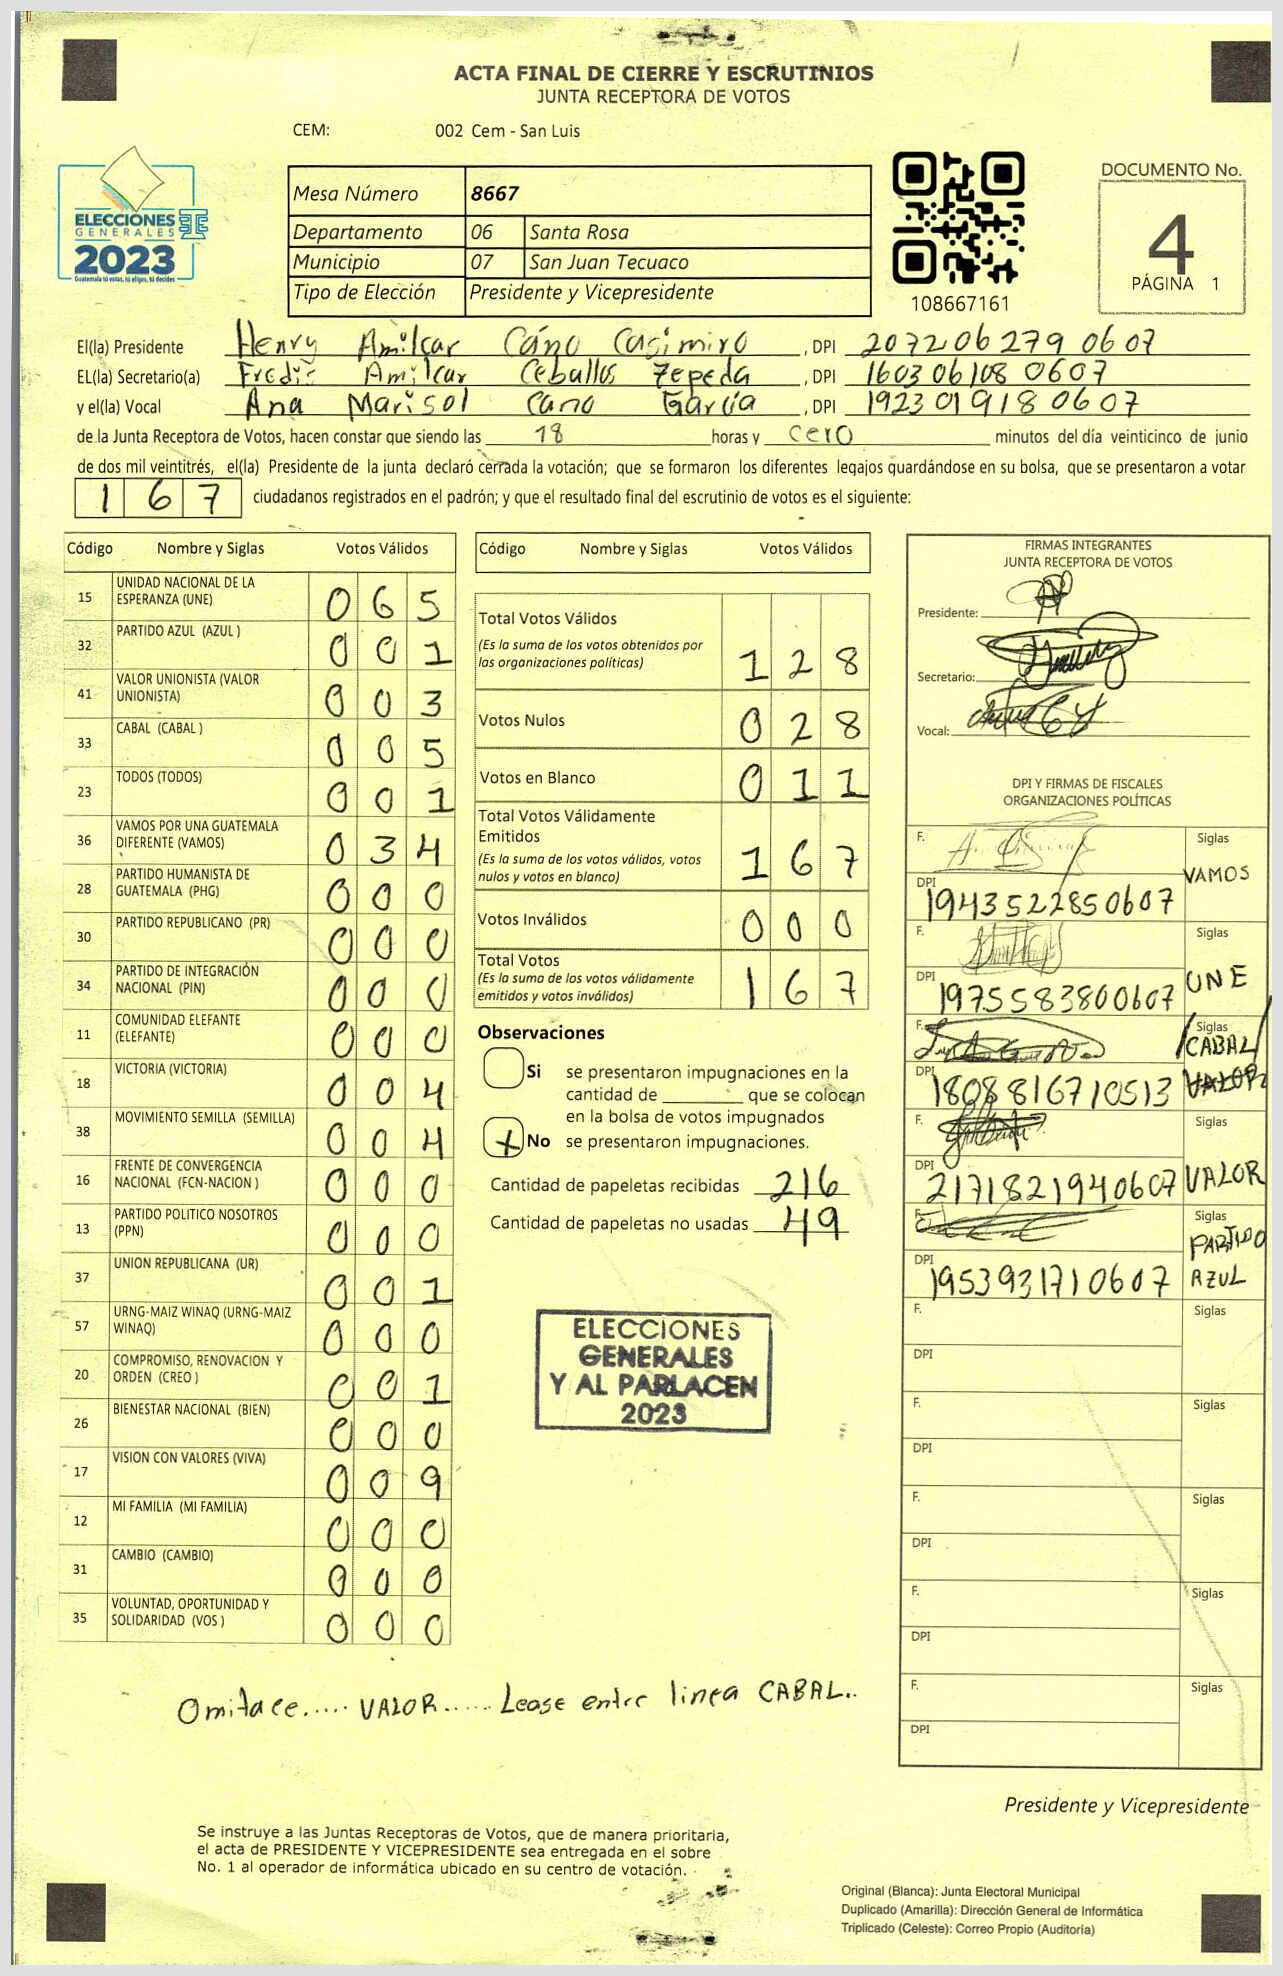 ACTA FINAL DE CIERRE Y ESCRUTINIOS
JUNTA RECEPTORA DE VOTOS
CEM: 002 Cem - San Luis
ELECCIONES
GENERALES
2023
Guatemala tú votas, tú eliges, tú decides
Mesa Número 8667
Departamento 06 Santa Rosa
Municipio 07 San Juan Tecuaco
Tipo de Elección Presidente y Vicepresidente
108667161
DOCUMENTO No.
4
PÁGINA 1
El(la) Presidente Henry Amilcar Cáno Casimiro , DPI 2072062790607
EL(la) Secretario(a) Fredis Amilcar Ceballos Zepeda , DPI 1603061080607
y el(la) Vocal Ana Marisol Cano García , DPI 1923019180607
de la Junta Receptora de Votos, hacen constar que siendo las 18 horas y cero minutos del día veinticinco de junio
de dos mil veintitrés, el(la) Presidente de la junta declaró cerrada la votación; que se formaron los diferentes legajos quardándose en su bolsa, que se presentaron a votar
167 ciudadanos registrados en el padrón; y que el resultado final del escrutinio de votos es el siguiente:
Código Nombre y Siglas Votos Válidos
15 UNIDAD NACIONAL DE LA ESPERANZA (UNE) 065
32 PARTIDO AZUL (AZUL ) 001
41 VALOR UNIONISTA (VALOR UNIONISTA) 003
33 CABAL (CABAL ) 005
23 TODOS (TODOS) 001
36 VAMOS POR UNA GUATEMALA DIFERENTE (VAMOS) 034
28 PARTIDO HUMANISTA DE GUATEMALA (PHG) 000
30 PARTIDO REPUBLICANO (PR) 000
34 PARTIDO DE INTEGRACIÓN NACIONAL (PIN) 000
11 COMUNIDAD ELEFANTE (ELEFANTE) 000
18 VICTORIA (VICTORIA) 004
38 MOVIMIENTO SEMILLA (SEMILLA) 004
16 FRENTE DE CONVERGENCIA NACIONAL (FCN-NACION ) 000
13 PARTIDO POLITICO NOSOTROS (PPN) 000
37 UNION REPUBLICANA (UR) 001
57 URNG-MAIZ WINAQ (URNG-MAIZ WINAQ) 000
20 COMPROMISO, RENOVACION Y ORDEN (CREO ) 001
26 BIENESTAR NACIONAL (BIEN) 000
17 VISION CON VALORES (VIVA) 009
12 MI FAMILIA (MI FAMILIA) 000
31 CAMBIO (CAMBIO) 000
35 VOLUNTAD, OPORTUNIDAD Y SOLIDARIDAD (VOS ) 000
Código Nombre y Siglas Votos Válidos
Total Votos Válidos
(Es la suma de los votos obtenidos por
las organizaciones políticas) 128
Votos Nulos 028
Votos en Blanco 011
Total Votos Válidamente
Emitidos
(Es la suma de los votos válidos, votos
nulos y votos en blanco) 167
Votos Inválidos 000
Total Votos
(Es la suma de los votos válidamente
emitidos y votos inválidos) 167
Observaciones
Si se presentaron impugnaciones en la
cantidad de ________ que se colocan
en la bolsa de votos impugnados
X No se presentaron impugnaciones.
Cantidad de papeletas recibidas 216
Cantidad de papeletas no usadas 49
ELECCIONES
GENERALES
Y AL PARLACEN
2023
FIRMAS INTEGRANTES
JUNTA RECEPTORA DE VOTOS
Presidente:
Secretario:
Vocal:
DPI Y FIRMAS DE FISCALES
ORGANIZACIONES POLÍTICAS
F. Siglas
VAMOS
DPI 1943522850607
F. Siglas
UNE
DPI 1975583800607
F. Siglas
/CABAL/
DPI 1808816710513 VALOR
F. Siglas
DPI 2171821940607 VALOR
F. Siglas
PARTIDO
DPI 1953931710607 AZUL
F. Siglas
DPI
F. Siglas
DPI
F. Siglas
DPI
F. Siglas
DPI
F. Siglas
DPI
Omitace..... VALOR..... Lease entre linea CABAL..
Presidente y Vicepresidente
Se instruye a las Juntas Receptoras de Votos, que de manera prioritaria,
el acta de PRESIDENTE Y VICEPRESIDENTE sea entregada en el sobre
No. 1 al operador de informática ubicado en su centro de votación.
Original (Blanca): Junta Electoral Municipal
Duplicado (Amarilla): Dirección General de Informática
Triplicado (Celeste): Correo Propio (Auditoría)